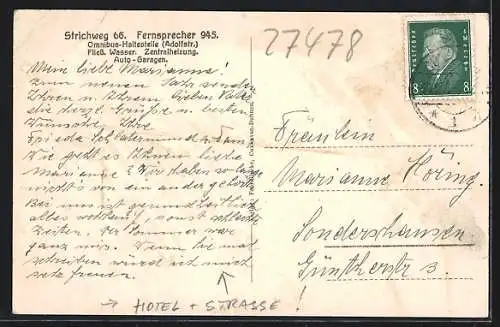 Strichweg 66. Fernsprecher 945.
Omnibus-Haltestelle (Adolfstr.)
Fließ. Wasser. Zentralheizung.
Auto-Garagen.
27478
Deutsches Reich
8 8
Meine liebe Marianne!
zum neuen Jahr senden
Ihnen u. Ihrem lieben
die herzl. Grüße u. besten
Wünsche Ihre
Frieda
Wie geht es Ihnen liebe
Marianne? Wir haben so lange
nichts von einander gehört.
Bei uns ist gesundheitlich
alles wohlauf, sonst schlechte
Zeiten. Der Sommer war
ganz mies. Wenn Sie mal
schreiben würd ich mich
sehr freuen.
Fräulein
Marianne Höring
Sondershausen
Güntherstr 3.
→ HOTEL + STRASSE !